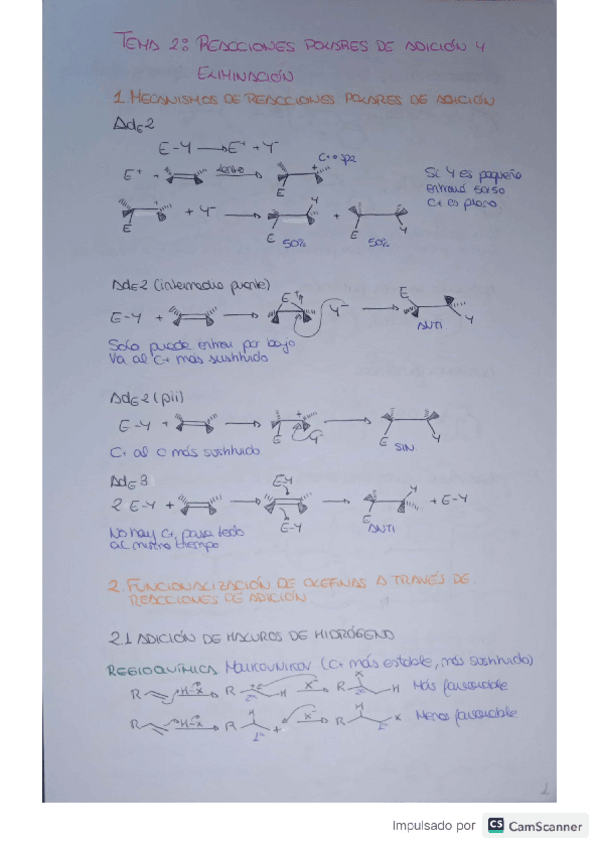 TEMA 2: REACCIONES POLARES DE ADICIÓN Y
ELIMINACIÓN
1. MECANISMOS DE REACCIONES POLARES DE ADICIÓN
AdE2
E-Y → E+ + Y-
E+ + lento → C+ sp2
E
Si Y es pequeño
entrará 50:50
C+ es plano.
E + Y- → E 50% + E Y 50%
Y
AdE2 (intermedio puente)
E-Y + → E+ Y- → E Y
ANTI
Solo puede entrar por abajo
Va al C+ más sustituido
AdE2 (pii)
E-Y + → E + Y- → E Y
SIN
C+ al C más sustituido
AdE3
2 E-Y + → E-Y E-Y → E Y + E-Y
ANTI
No hay C+, pasa todo
al mismo tiempo
2. FUNCIONALIZACIÓN DE OLEFINAS A TRAVÉS DE
REACCIONES DE ADICIÓN
2.1 ADICIÓN DE HALUROS DE HIDRÓGENO
REGIOQUÍMICA MARKOVNIKOV (C+ más estable, más sustituido)
R H-X → R + H 2º X- → R X H Más favorable
R H-X → R H + 1º X- → R H X 1º Menos favorable
1
Impulsado por CS CamScanner